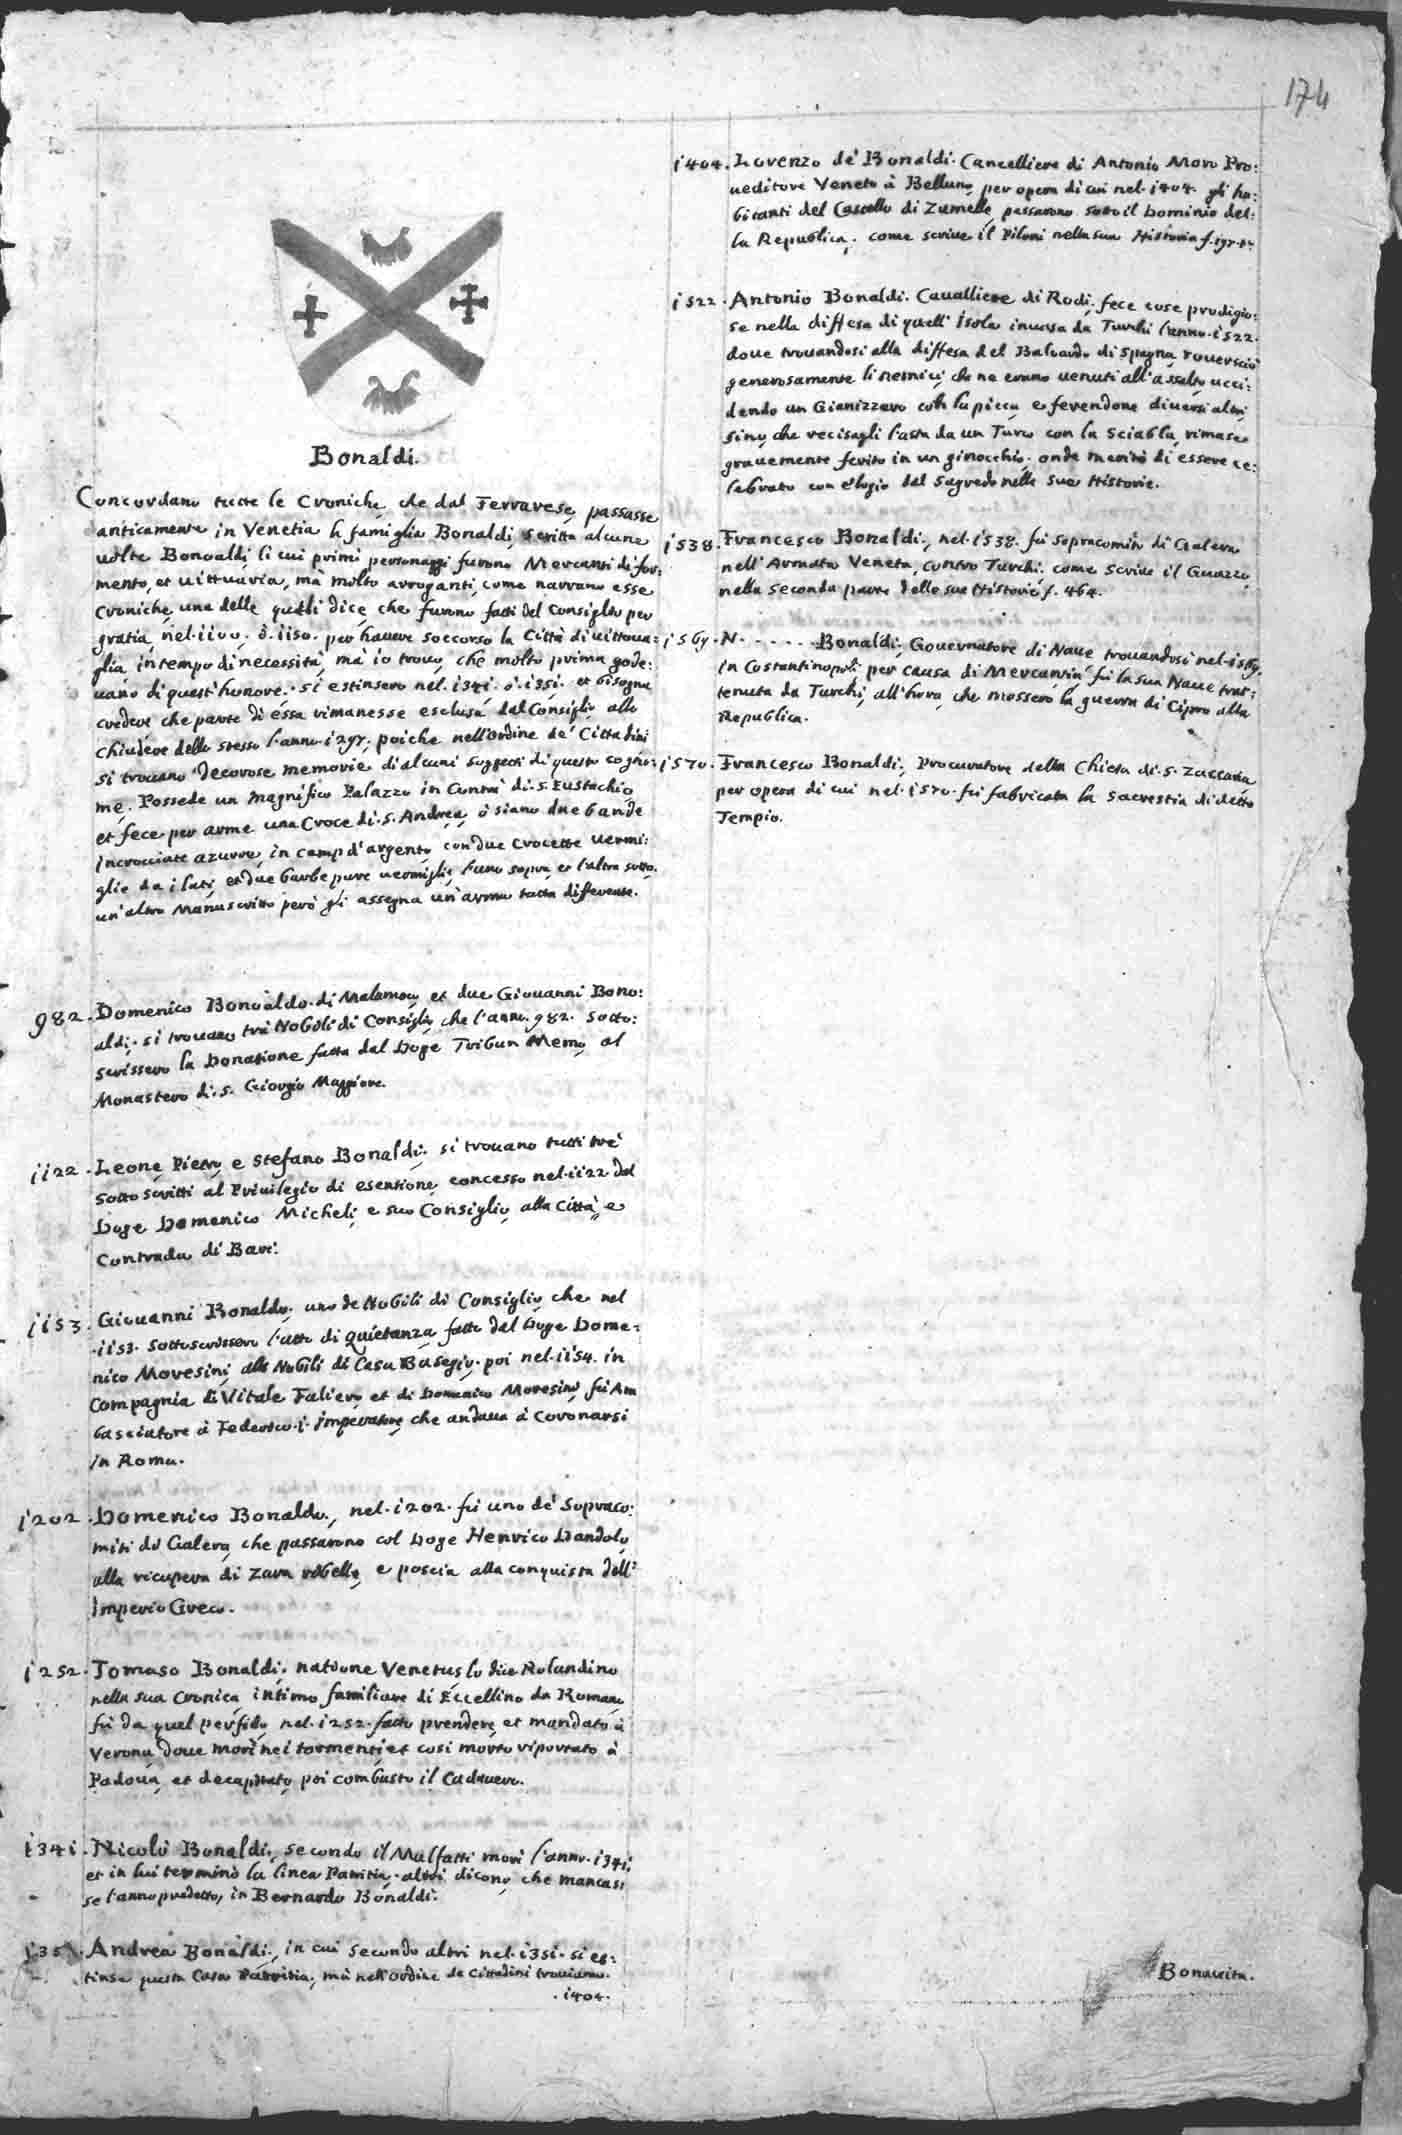 174
Bonaldi.
Concordano tutte le Croniche, che dal Ferrarese, passasse
anticamente in Venetia la famiglia Bonaldi, scritta alcune
uolte Bonoaldi, li cui primi personaggi furono Mercanti di for:
mento, et uittuaria, ma molto arroganti, come narrano esse
Croniche, una delle quali dice, che furono fatti del Consiglio per
gratia, nel.iioo. ò.ii50. per hauere soccorso la Città di uittoua:
glia, in tempo di necessità, mà io trouo, che molto prima gode:
uano di quest'honore. si estinsero nel.i34i. ò.i35i. et bisogna
credere che parte di essa rimanesse esclusa dal Consiglio allo
chiudere dello stesso l'anno.i297. poiche nell'ordine de' Cittadini
si trouano decorose memorie di alcuni soggetti di questo cogno:
me. Possede un magnifico Palazzo in Contrà di.S.Eustachio,
et fece per arme una Croce di.S.Andrea, ò siano due bande
incrocciate azurre, in campo d'argento, con due Crocette uermi:
glie da i lati, et due barbe pure uermiglie, l'una sopra, et l'altra sotto.
un'altro Manuscritto però gli assegna un'arma tutta differente.
982. Domenico Bonoaldo.di Malamoco, et due Giouanni Bono:
aldi. si trouano trà Nobili di Consiglio, che l'anno.982. sotto:
scrissero la Donatione fatta dal Doge Tribun Memo, al
Monastero di.S. Giorgio Maggiore.
ii22. Leone, Pietro, e Stefano Bonaldi. si trouano tutti trè
sotto scritti al Priuilegio di esentione, concesso nel.ii22. dal
Doge Domenico Micheli, e suo Consiglio, alla Città, e
Contrada di Bari.
ii53. Giouanni Bonaldo. uno de Nobili di Consiglio, che nel
.ii53. sottoscrissero l'atto di Quietanza, fatto dal Doge Dome:
nico Moresini, alli Nobili di Casa Basegio. poi nel.ii54. in
Compagnia di Vitale Faliero, et di Domenico Moresini, fù Am
basciatore à Federico.i. Imperatore, che andaua à Coronarsi
in Roma.
i202. Domenico Bonaldo., nel.i202. fù uno de' Sopraco:
miti di Galera, che passarono col Doge Henrico Dandolo,
alla ricupera di Zara ribelle, e poscia alla conquista dell'
Imperio Greco.
i252. Tomaso Bonaldi. natione Venetus lo dice Rolandino
nella sua Cronica, intimo familiare di Eccellino da Romano,
fù da quel perfido, nel.i252. fatto prendere, et mandato à
Verona, doue morì nei tormenti, et così morto riportato à
Padoua, et decapitato, poi combusto il Cadauero.
i34i. Nicolò Bonaldi., secondo il Malfatti morì l'anno.i34i,
et in lui terminò la linea Patritia. altri dicono, che mancas:
se l'anno predetto, in Bernardo Bonaldi.
i35i. Andrea Bonaldi., in cui secondo altri nel.i35i. si es:
tinse questa Casa Patritia, mà nell'ordine de Cittadini trouiamo.
.i404.
i404. Lorenzo de' Bonaldi. Cancelliere di Antonio Moro Pro:
ueditore Veneto à Belluno, per opera di cui nel.i404. gli ha:
bitanti del Castello di Zumelle, passarono sotto il Dominio del:
la Republica, come scriue il Piloni nella sua Historia
i522. Antonio Bonaldi. Caualliere di Rodi. fece cose prodigio:
se nella diffesa di quell'Isola inuasa da Turchi l'anno.i522.
doue trouandosi alla diffesa del Baloardo di Spagna, rouersciò
generosamente li nemici, che ne erano uenuti all'assalto, ucci:
dendo un Gianizzaro con la picca, e ferendone diuersi altri,
sino, che recisagli l'asta da un Turco con la Sciabla, rimase
grauemente ferito in un ginocchio. onde meritò di essere ce:
lebrato con elogio dal Sagredo nelle sue Historie.
i538. Francesco Bonaldi., nel.i538. fù Sopracomito di Galera
nell'Armata Veneta, contro Turchi. come scriue il Guazzo,
nella seconda parte delle sue Historie f. 464.
i569. N. - - - - - Bonaldi. Gouernatore di Naue trouandosi nel.i569.
in Costantinopoli per causa di Mercantia, fù la sua Naue trat:
tenuta da Turchi, all'hora, che mossero la guerra di Cipro alla
Republica.
i570. Francesco Bonaldi., Procuratore della Chiesa di.S. Zaccaria
per opera di cui nel.i570. fù fabricata la Sacrestia di detto
Tempio.
Bonauita.